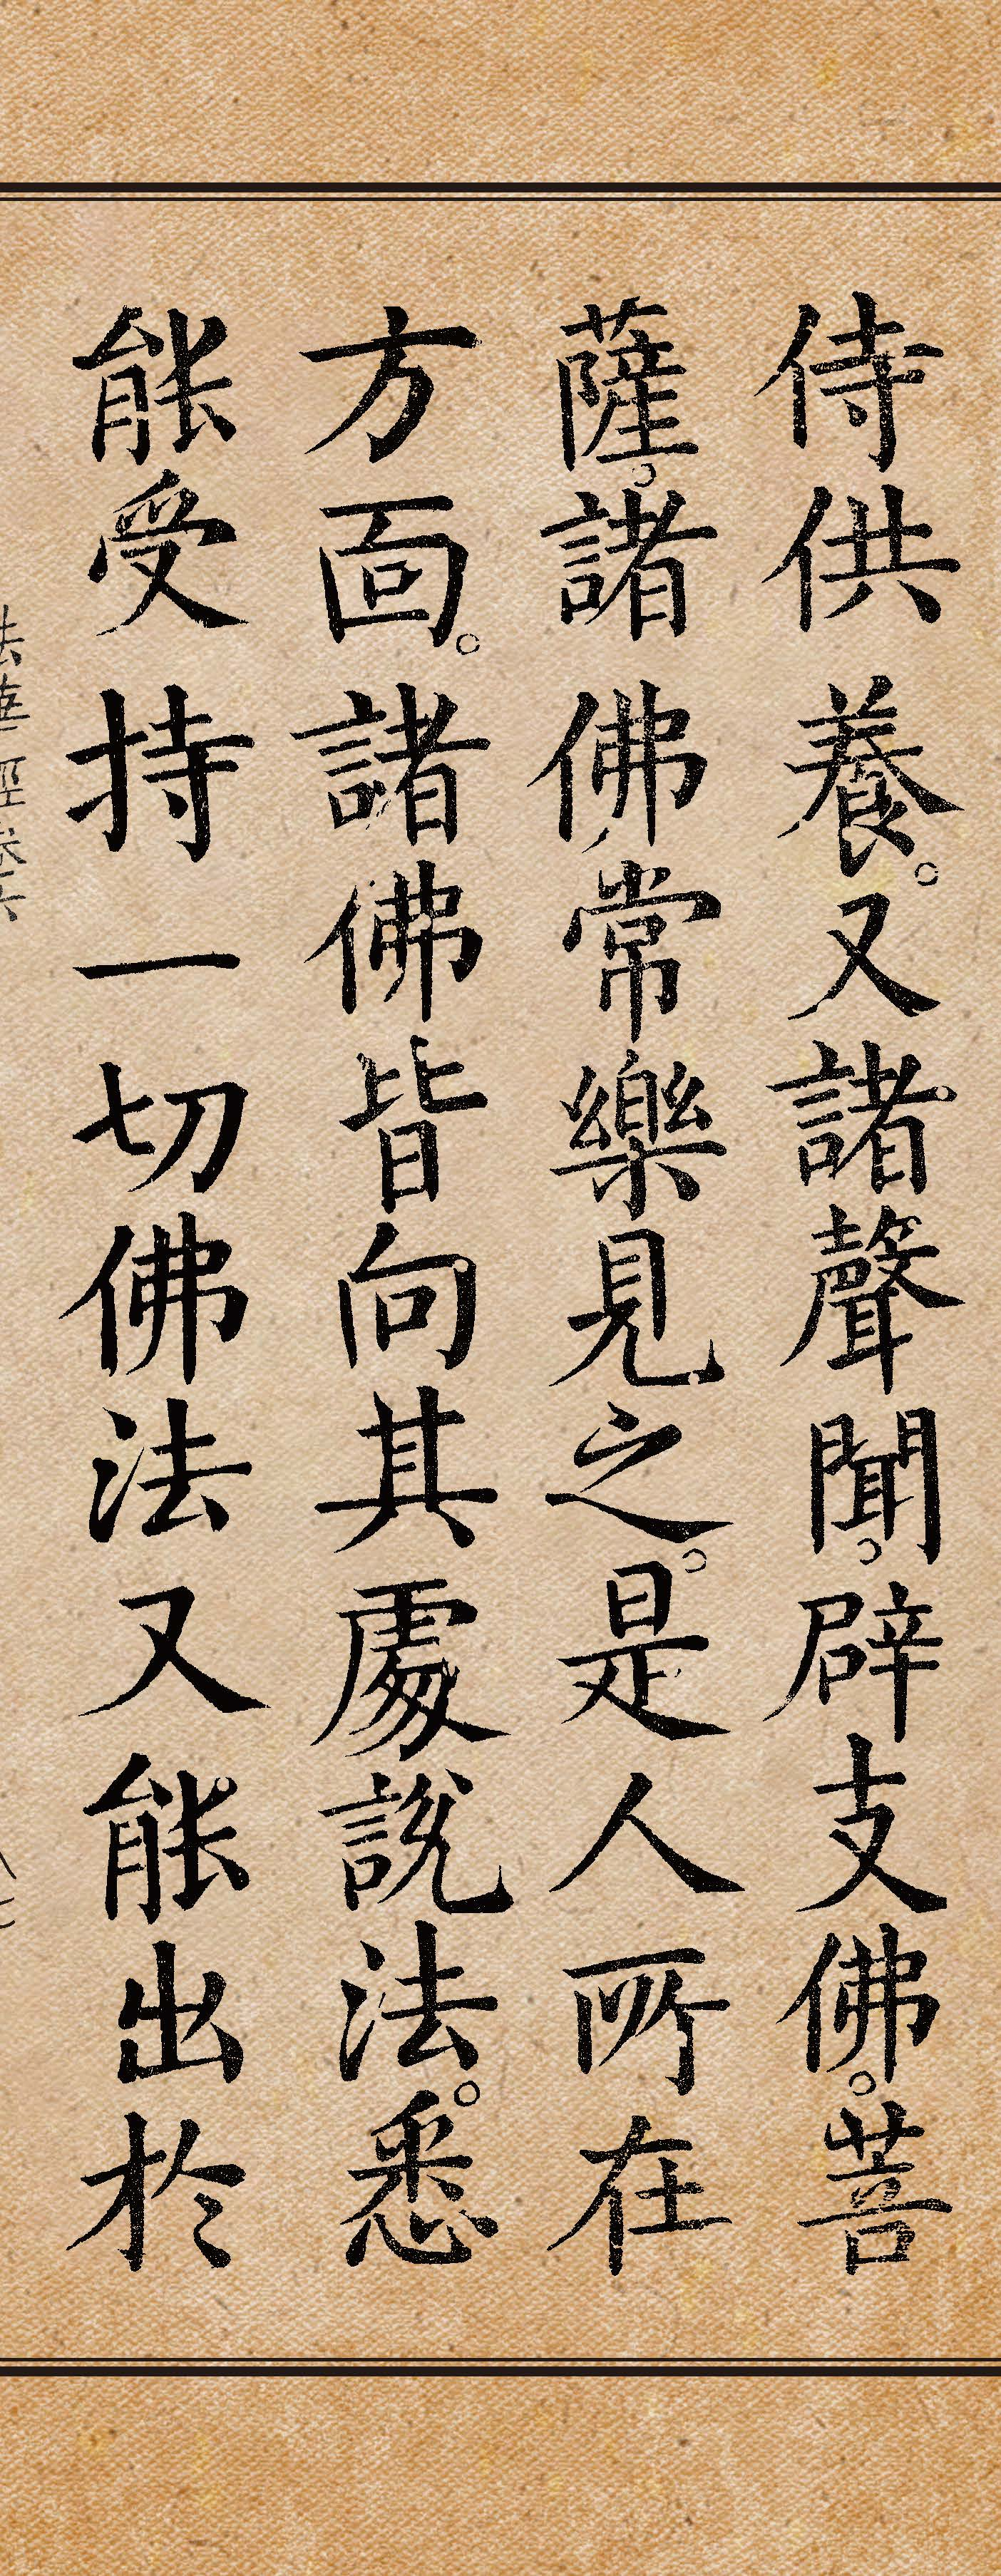 侍供養。又諸聲聞。辟支佛。菩
薩。諸佛常樂見之。是人所在
方面。諸佛皆向其處說法。悉
能受持一切佛法又能出於
法華經卷六